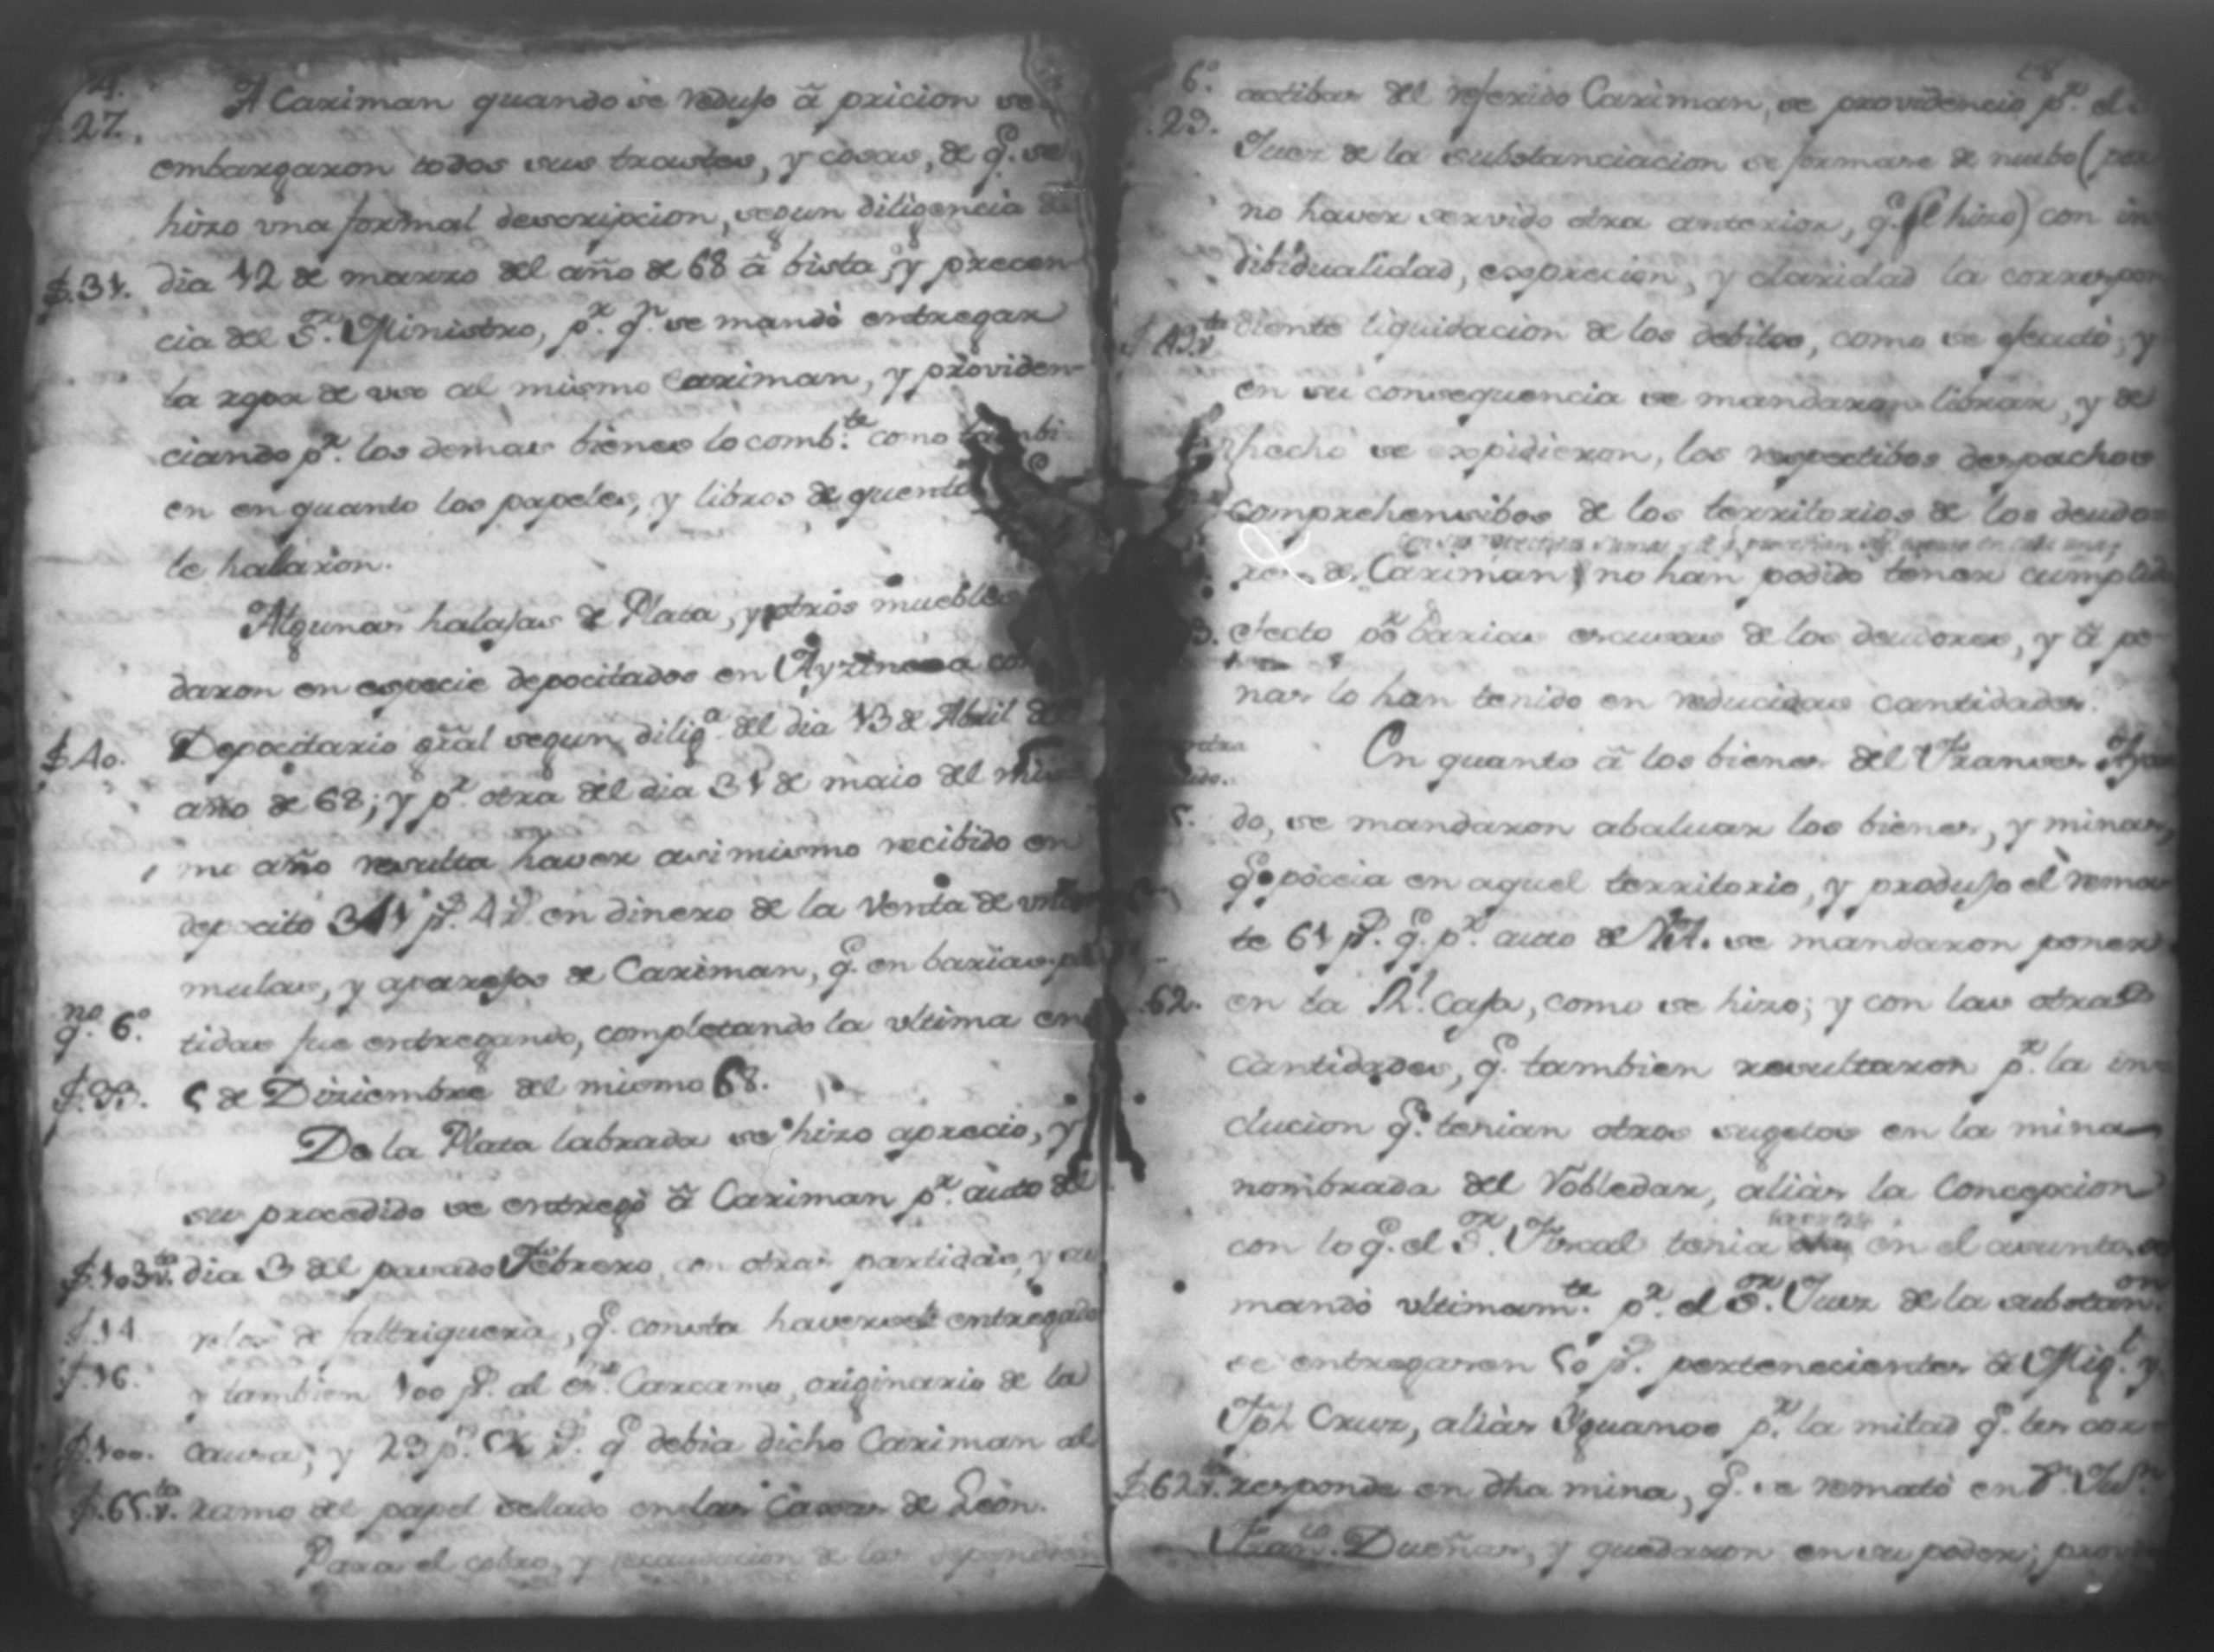 4.
f.27.
A Cariman quando se redujo â pricion se
embargaron todos sus trastes, y cosas, de q.e se
hizo vna formal descripcion, segun diligencia de
f.31. dia 12 de marzo del año de 68 â bista, y precen
cia del S.or Ministro, p.r q.n se mandò entregar
la ropa de vso al mismo Cariman, y providen-
ciando p.r los demas bienes lo comb.te como tambi
en en quanto los papeles, y libros de quenta
le hallaron.
Algunas halajas de Plata, y otros muebles
daron en especie depocitados en
f.40. Depocitario gral segun dilig.a del dia 13 de Abril del
año de 68; y p.r otra del dia 31 de maio del mis
mo año resulta haver asimismo recibido en
deposito 341 p.s 4 r.s en dinero de la Venta de
mulas, y aparejos de Cariman, q.e en barias
q.no 6.o tidas fue entregando, completando la vltima en
f.33. 5 de Diziembre del mismo 68.
De la Plata labrada se hizo aprecio, y
su procedido se entregò â Cariman p.r auto del
f.103.v.ta dia 3 del pasado Febrero, con otras partidas, y
f.14. relox de faltriquera, q.e consta haversele entregado
f.16. y tambien 100 p.s al Carcamo, originario de la
f.100. causa; y 23 p.s r.s q.e debia dicho Cariman al
f.65.v.ta ramo del papel sellado en las Caxas de Leòn.
Para el cobro, y recaudacion de las dependen
6.o
.29.
actibas del referido Cariman, se providenciò p.r el
Juez de la substanciacion se formase de nuebo (por
no haver servido otra anterior, q.e se hizo) con in
dibidualidad, exprecion, y claridad la correspon
f.43.v.ta diente liquidacion de los debitos, como se efectuò, y
en su consequencia se mandaron librar, y de
hecho se expidieron, los respectibos despachos
comprehensibos de los territorios de los deudo-
res de Cariman, no han podido tener cumplido
efecto p.r barias escusas de los deudores, y â pe
nas lo han tenido en reducidas cantidades.
En quanto â los bienes del Frances
do, se mandaron abaluar los bienes, y minas,
q.e pòceia en aquel territorio, y produjo el rema
te 61 p.s q.e p.r auto de V.A. se mandaron poner
.62. en la R.l Caja, como se hizo; y con las otras
cantidades, q.e tambien resultaron p.r la in-
clucion q.e tenian otros sugetos en la mina
nombrada del Robledar, aliàs la Concepcion
con lo q.e el S.or Fiscal tenia en el asunto, se
mandò vltimam.te p.r el S.or Juez de la substan.on
se entregaran 50 p.s pertenecientes â Mig.l y
Jph Cruz, aliàs Yguanos p.r la mitad q.e les cor-
f.62.v.ta responde en dha mina, q.e se rematò en D.n Ju.n
Fran.co Dueñas, y quedaron en su poder;